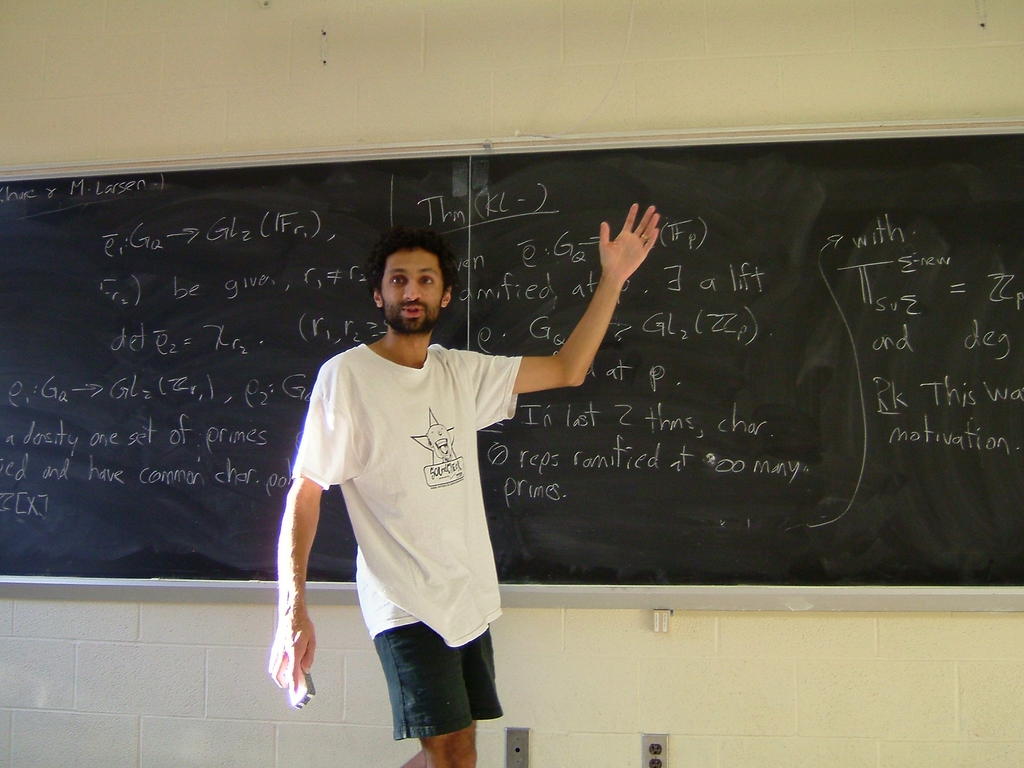 & M. Larsen -)
ρ̄₁: G_Q → GL₂(𝔽_{r₁}),
be given, r₁ ≠ r₂
det ρ̄₂ = χ_{r₂}. (r₁, r₂ ≥
ρ₁: G_Q → GL₂(ℤ_{r₁}), ρ₂: G_Q
a density one set of primes
and have common char. pol
[X]
Thm (KL-)
ρ̄: G_Q → (𝔽_p)
at p. ∃ a lift
ρ: G_Q → GL₂(ℤ_p).
at p.
In last 2 thms, char.
0 reps ramified at ∞ many
primes.
with
𝕋_{S∪Σ}^{Σ-new} = ℤ_p
and deg
Rk This wa
motivation.